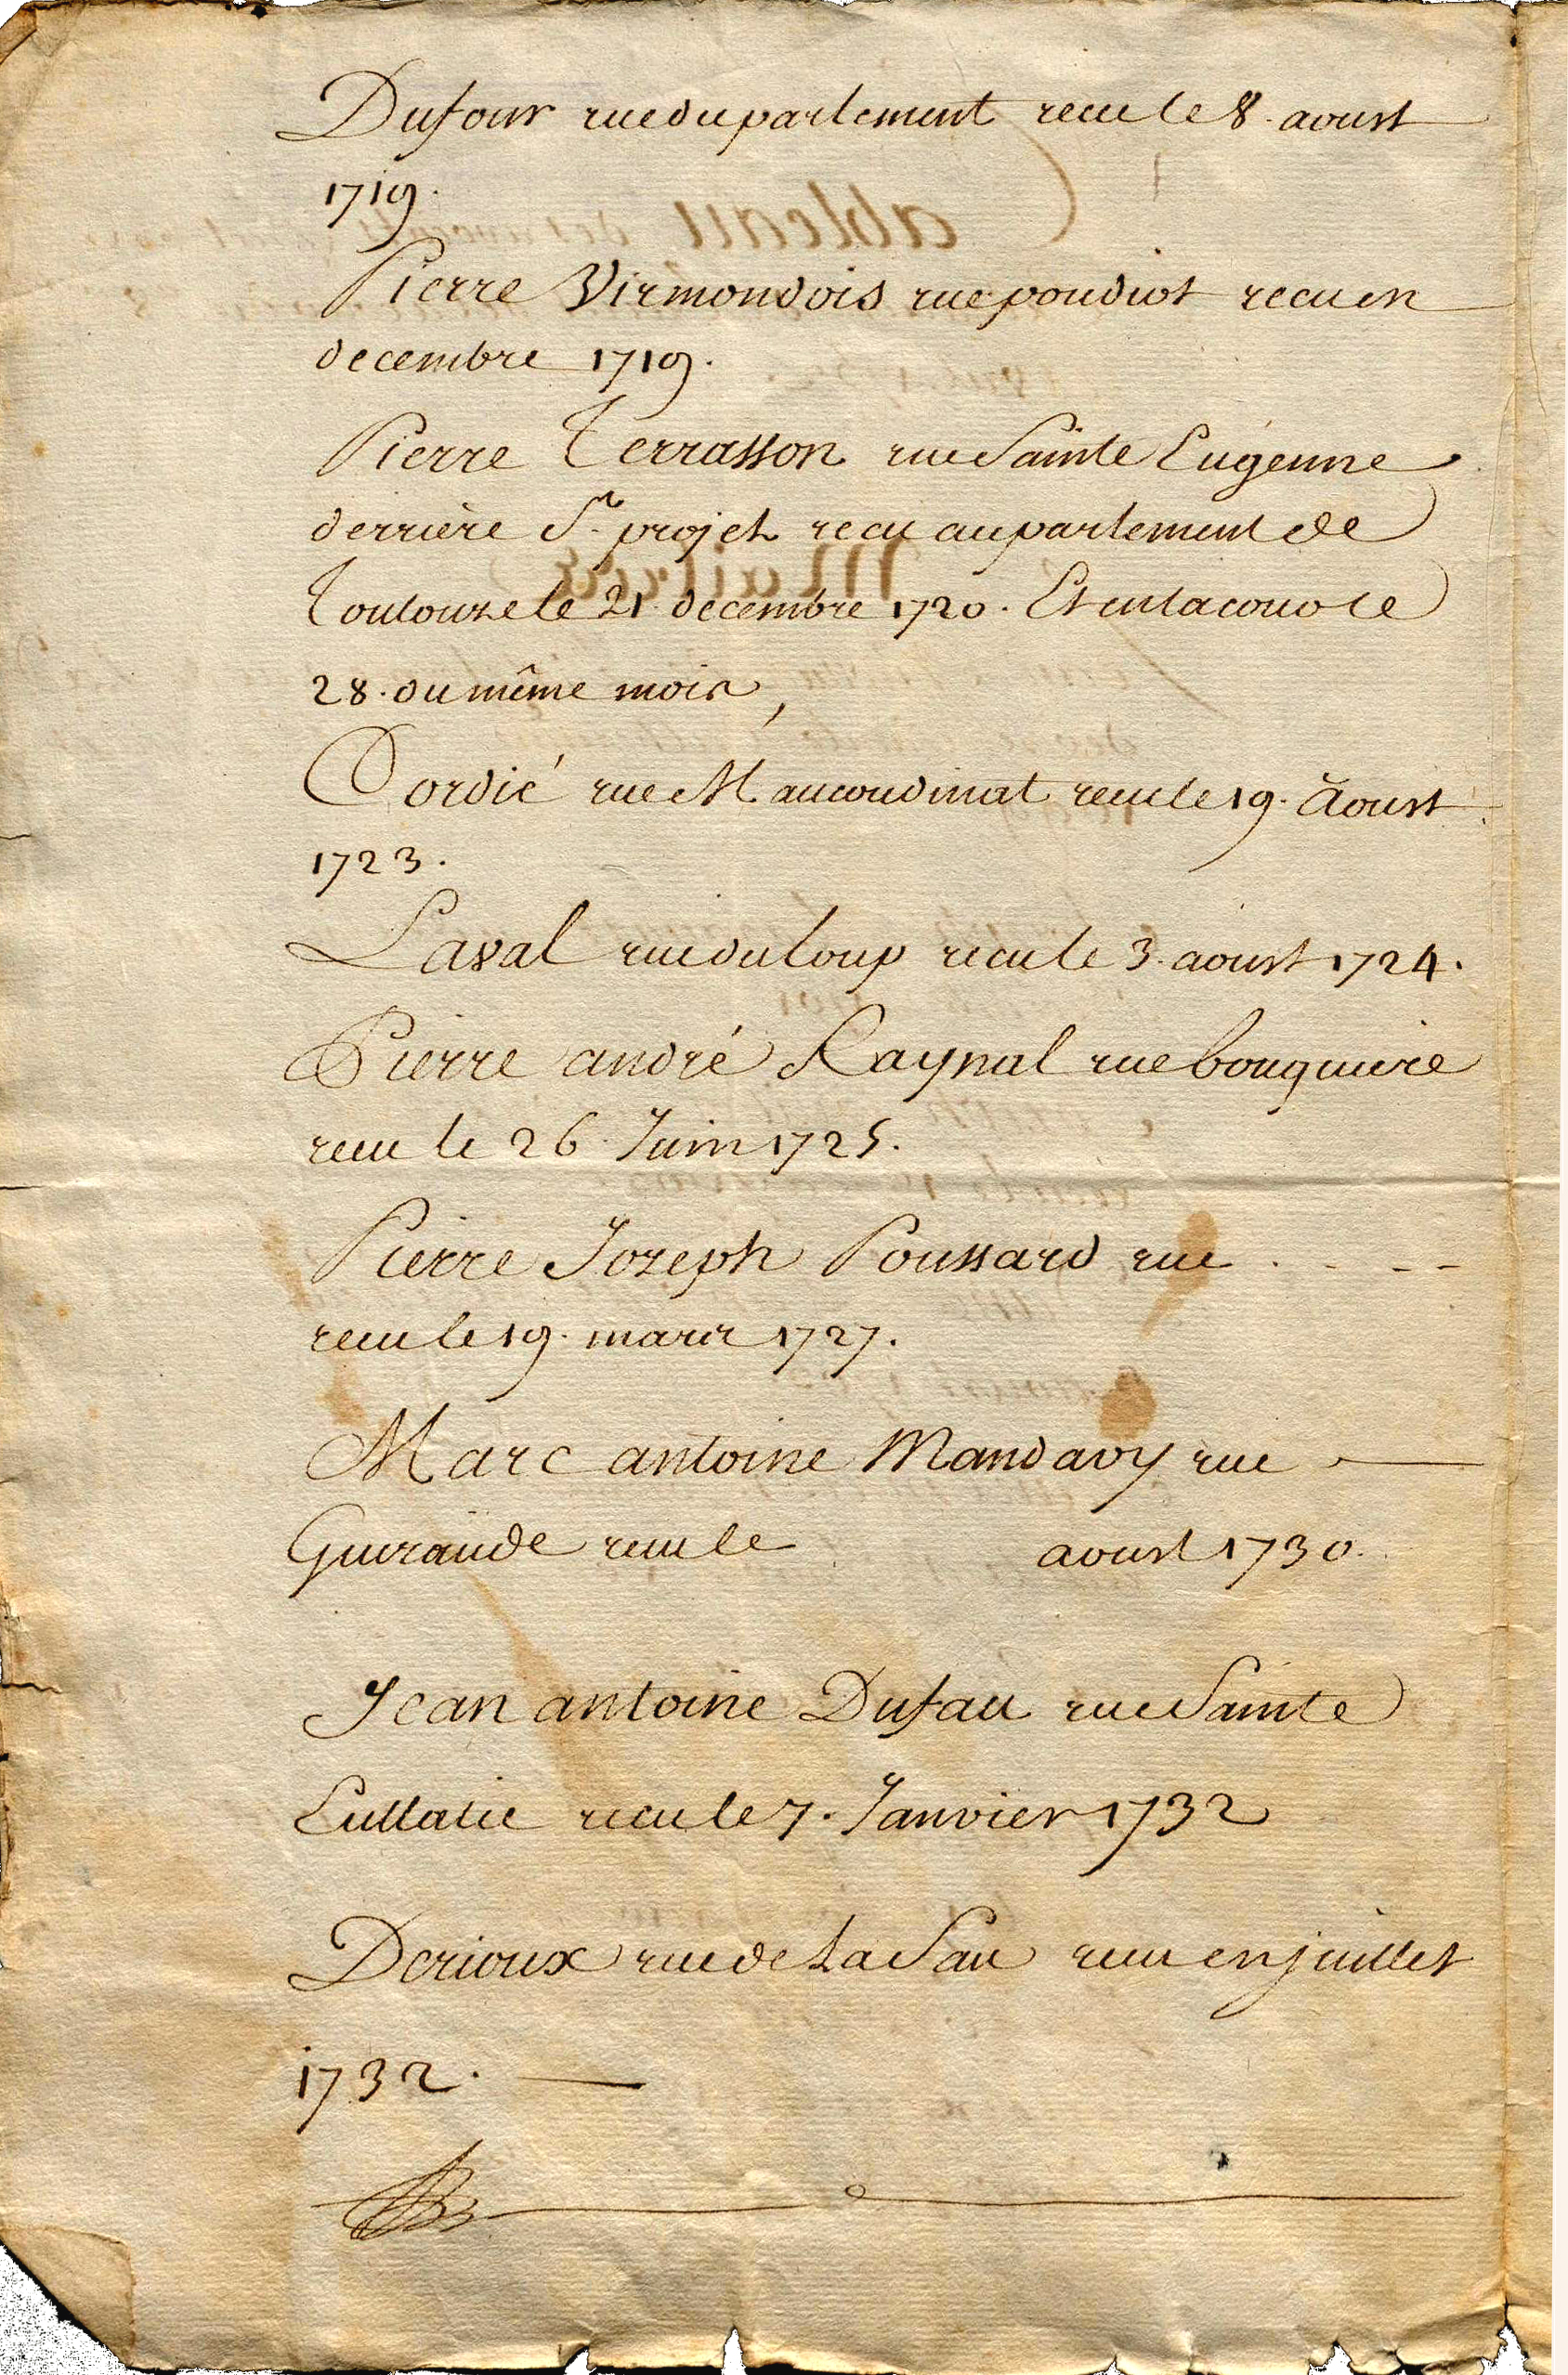 Dufour rue du parlement receu le 8. aoust
1719.
Pierre Virmondois rue poudiot recu en
decembre 1719.
Pierre Terrasson rue Sainte Eugenne
derrière St. projet recu au parlement de
Toulouze le 21. decembre 1720. Et en la cour le
28. du même mois,
Cordié rue Maucoudinat receu le 19. Aoust
1723.
Laval rue du Loup recu le 3. aoust 1724.
Pierre andré Raynal rue bouquiere
receu le 26. Juin 1725.
Pierre Jozeph Poussard rue . - - -
receu le 19. mars 1727.
Marc antoine Mandavy rue —
Guiraude receu le aoust 1730.
Jean antoine Dufau rue Sainte
Eullalie recu le 7. Janvier 1732
Derioux rue de La Sau receu en juillet
1732. —